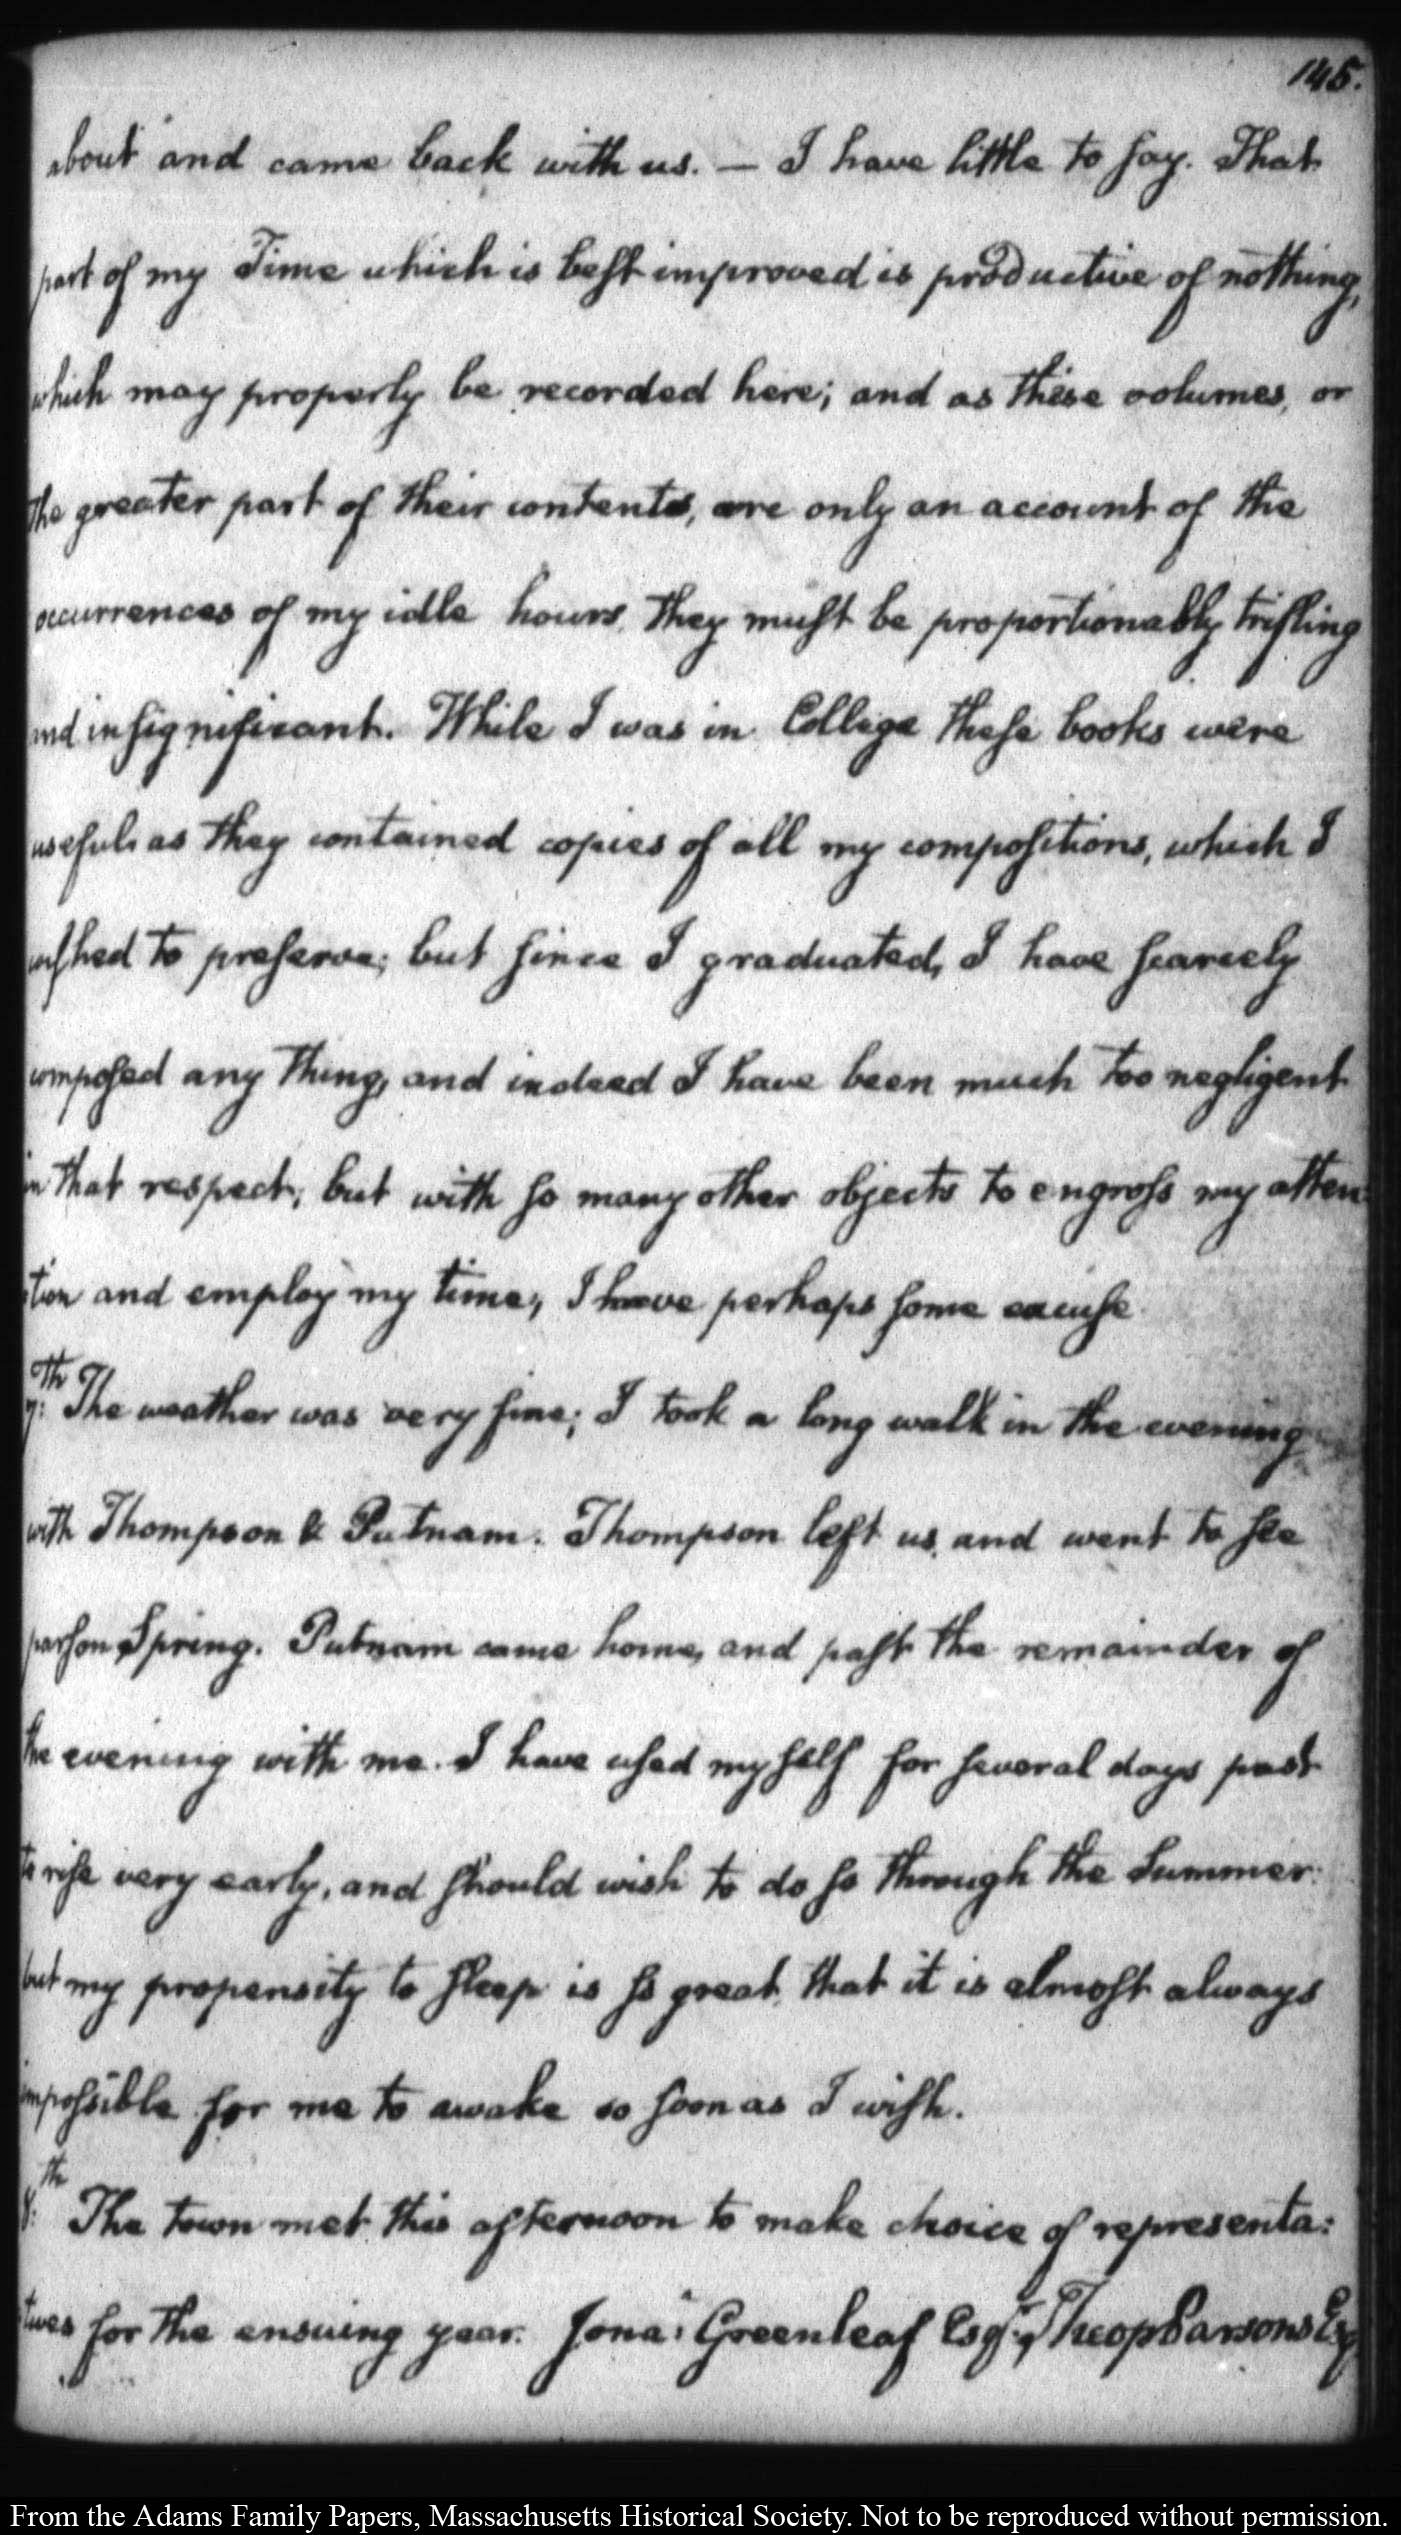 145.
about and came back with us. — I have little to say. That
part of my Time which is best improved is productive of nothing,
which may properly be recorded here; and as these volumes, or
the greater part of their contents, are only an account of the
occurrences of my idle hours, they must be proportionably trifling
and insignificant. While I was in College these books were
useful, as they contained copies of all my compositions, which I
wished to preserve; but since I graduated, I have scarcely
composed any thing, and indeed I have been much too negligent
in that respect; but with so many other objects to engross my atten:
:tion and employ my time, I have perhaps some excuse.
7:th The weather was very fine; I took a long walk in the evening
with Thompson & Putnam. Thompson left us, and went to see
parson Spring. Putnam came home, and past the remainder of
the evening with me. I have used myself for several days past
to rise very early, and should wish to do so through the Summer:
but my propensity to sleep is so great, that it is almost always
impossible for me to awake so soon as I wish.
8:th The town met this afternoon to make choice of representa:
tives for the ensuing year. Jona: Greenleaf Esqr., Theop Parsons Esq
From the Adams Family Papers, Massachusetts Historical Society. Not to be reproduced without permission.